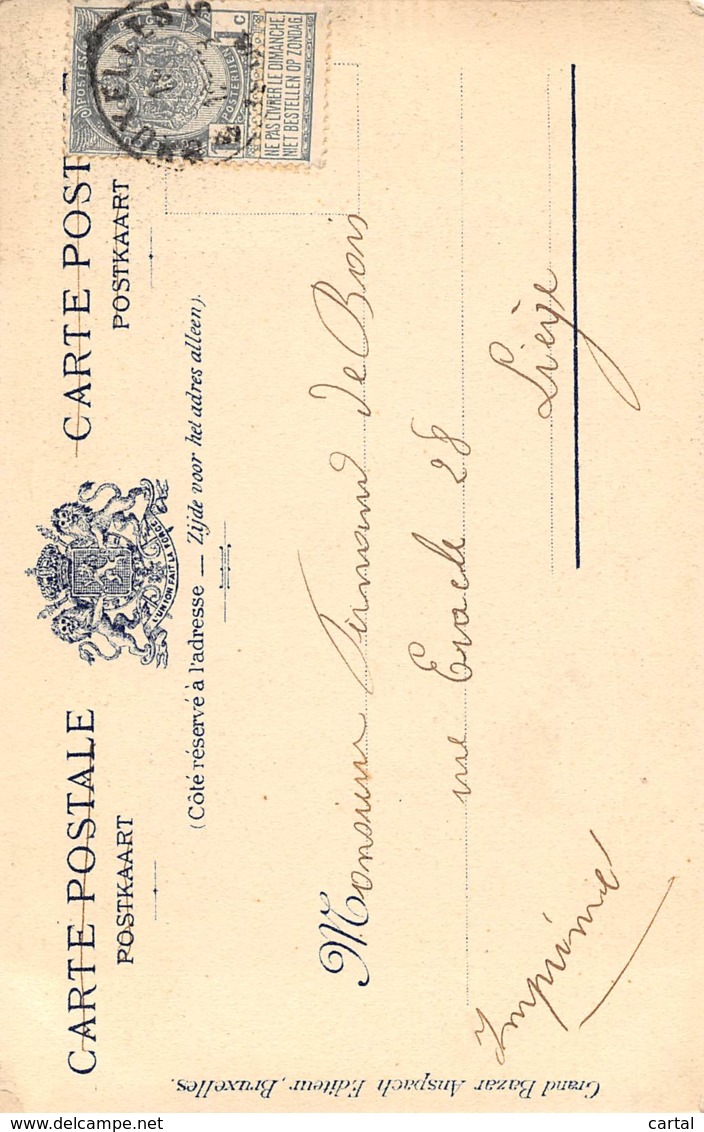 CARTE POSTALE
POSTKAART
L'UNION FAIT LA FORCE
CARTE POST
POSTKAART
(Côté réservé à l'adresse — Zijde voor het adres alleen).
POSTES
POSTERIJEN
1 c
1
NE PAS LIVRER LE DIMANCHE
NIET BESTELLEN OP ZONDAG
BRUXELLES
Monsieur Fernand de Bois
rue Eracle 28
Liége
Imprimé
Grand Bazar Anspach Editeur, Bruxelles.
delcampe.net
cartal